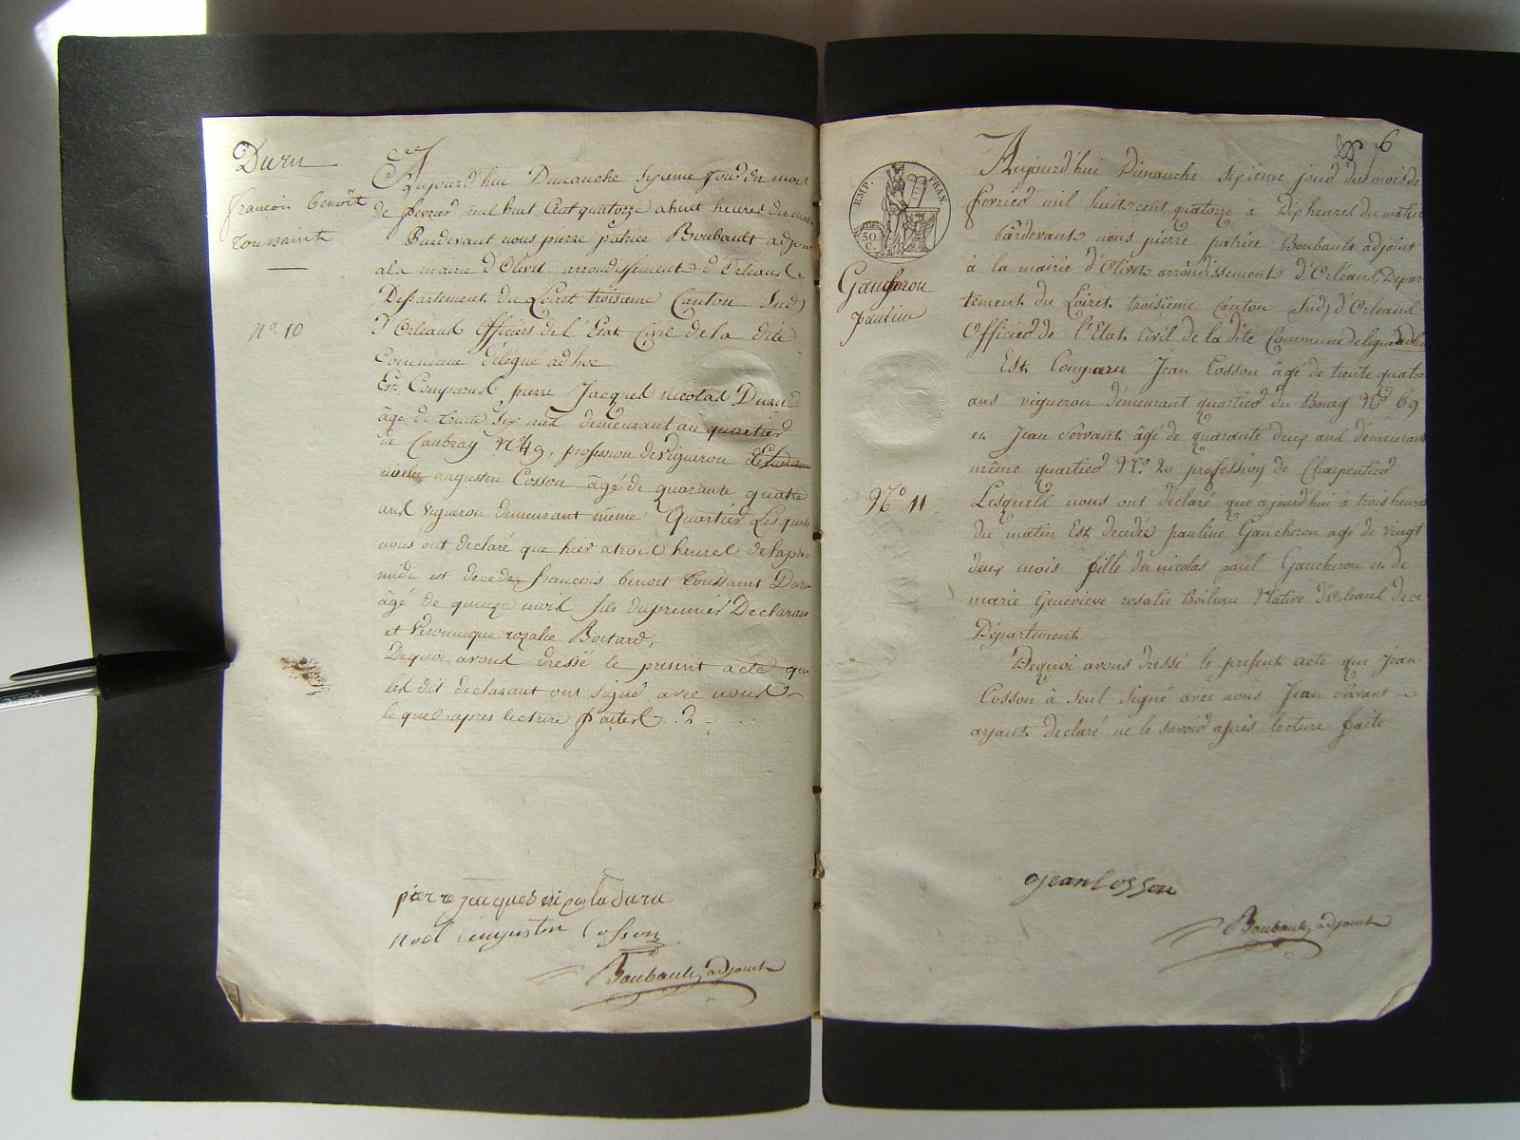 Duru
françois benoît
toussaint
N.º 10
Aujourd'hui Dimanche Sixieme Jour du mois
de fevrier mil huit Cent quatorze a huit heures du matin
Pardevant nous pierre patrice Boubault adjoint
a la mairie d'Olivet arrondissement d'Orleans
Departement du Loiret troisieme Canton Sud
d'Orleans Officier de l'Etat Civil de la dite
Commune délégué ad hoc
Est Comparus pierre Jacques nicolas Duru
âgé de trente six ans demeurant au quartier
de Caubray Nº 49, profession de vigneron
noel augustin Cosson âgé de quarante quatre
ans vigneron demeurant même Quartier Lesquels
nous ont declaré que hier a trois heures de lapre
midi est decedez françois benoit toussaint Duru
âgé de quinze mois fils du premier Declarant
et Veronique rozalie Boitard,
Dequoi avons dressé le present acte que
les dit declarant ont signé avec nous
le quel apres lecture faitel. 2
pierre jacques nicolas duru
noel augustin Cosson
Boubault adjoint
6
EMP. FRAN.
50
C.
Gaucheron
pauline
Nº 11
Aujourd'hui Dimanche Sixieme jour du mois de
fevrier mil huit cent quatorze à Dix heures du matin
Pardevant nous pierre patrice Boubault adjoint
à la mairie d'Olivet arrondissement d'Orléans Depar
tement du Loiret troisieme Canton Sud d'Orleans
Officier de l'Etat Civil de la dite Commune delegué ad hoc
Est Comparu Jean Cosson âgé de trente quatre
ans vigneron demeurant quartier du Bourg Nº 69
et Jean Servant âgé de quarante deux ans demeurant
même quartier Nº 20 profession de Charpentier
Lesquels nous ont declaré que ajourd'hui à trois heures
du matin Est decedée pauline Gaucheron age de vingt
deux mois fille de nicolas paul Gaucheron et de
marie Genevieve rosalie Boileau Native d'Orleans de ce
Département
Dequoi avons dressé le present acte que Jean
Cosson à seul signé avec nous Jean Servant
ayant declaré ne le savoir après lecture faite
jean Cosson
Boubault adjoint